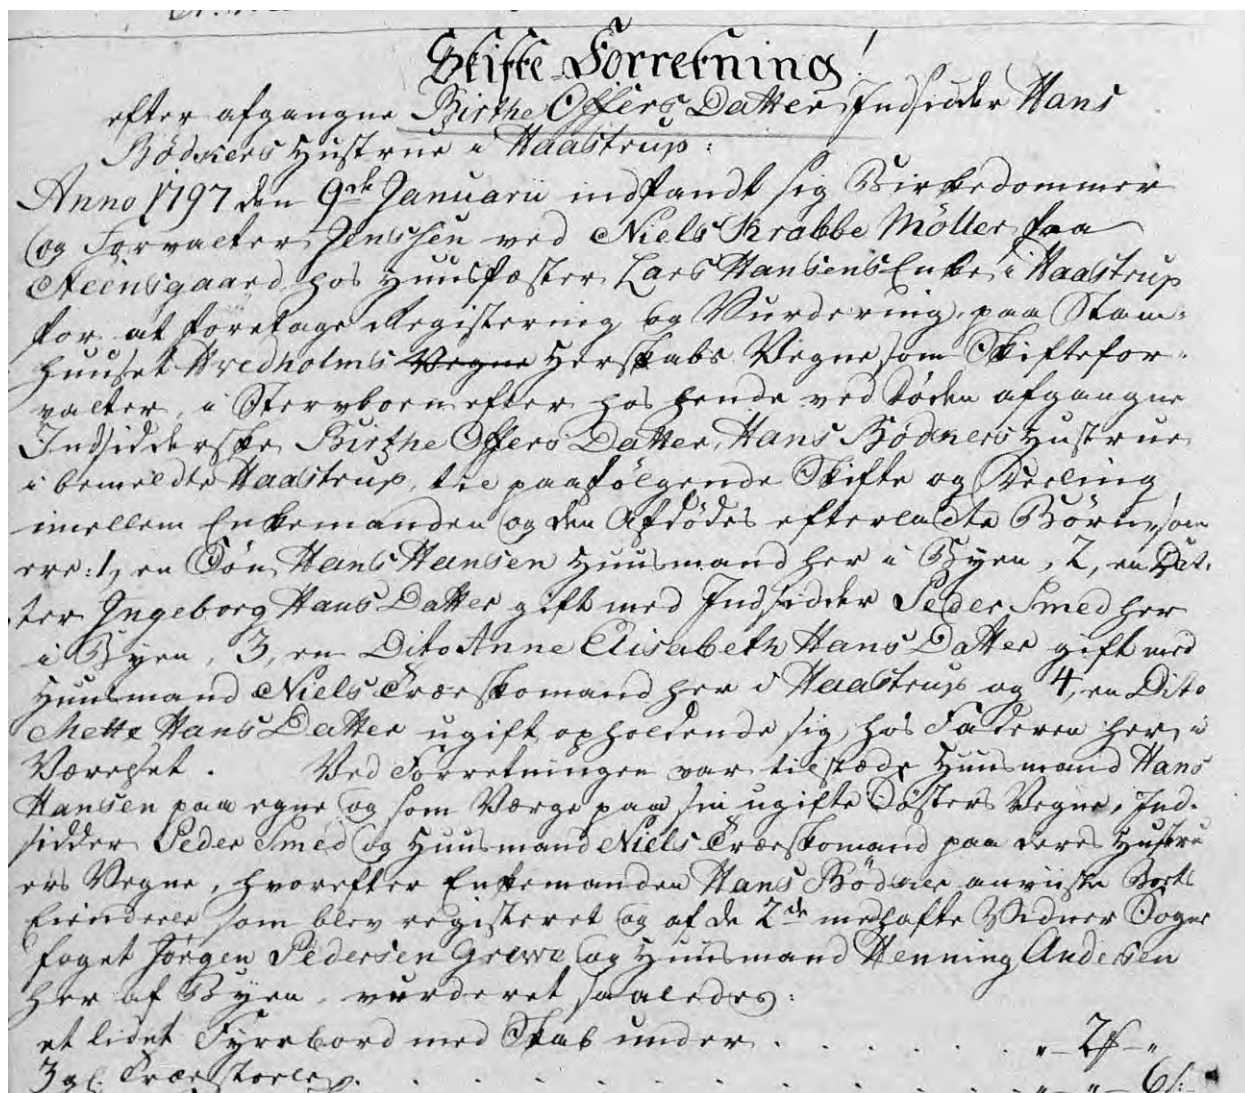 Skifte Forretning!
efter afgangne Birthe Offers Datter, Indsidder Hans
Bødkers Hustrue i Haastrup:
Anno 1797 den 9de Januarii indfandt sig Birkedommer
og Forvalter Jenssen ved Niels Krabbe Möller fra
Steensgaard hos Huusfæster Lars Hansens Enke i Haastrup
for at foretage Registering og Vurdering, paa Stam-
huuset Hvedholms Vegne Herskabs Vegne som Skiftefor-
valter, i Stervboen efter hos hende ved Døden afgangne
Indsidderske Birthe Offers Datter, Hans Bødkers Hustrue
i bemeldte Haastrup, til paafølgende Skifte og Deeling
imellem Enkemanden og den Afdødes efterladte Børn, som
ere: 1, en Søn Hans Hansen Huusmand her i Byen, 2, en Dat-
ter Ingeborg Hans Datter gift med Indsidder Peder Smed her
i Byen, 3, en Dito Anne Elisabeth Hans Datter gift med
Huusmand Niels Træeskomand her i Haastrup og 4, en Dito
Mette Hans Datter ugift, opholdende sig hos Faderen her i
Værelset. Ved Forretningen var tilstæde Huusmand Hans
Hansen paa egne og som Værge paa sin ugifte Søsters Vegne, Ind-
sidder Peder Smed og Huusmand Niels Træeskomand paa deres Hustru
ers Vegne, hvorefter Enkemanden Hans Bødker anviiste Boets
Eiendeele som blev registeret og af de 2de medhafte Vidner Sogne
foget Jørgen Pedersen Greve og Huusmand Henning Andersen
her af Byen, vurderet saaledes:
et lidet Fyrrebord med Skab under . . . . . . " - 2 " - "
3 gl. Træestole . . . . . . . " - " - 6